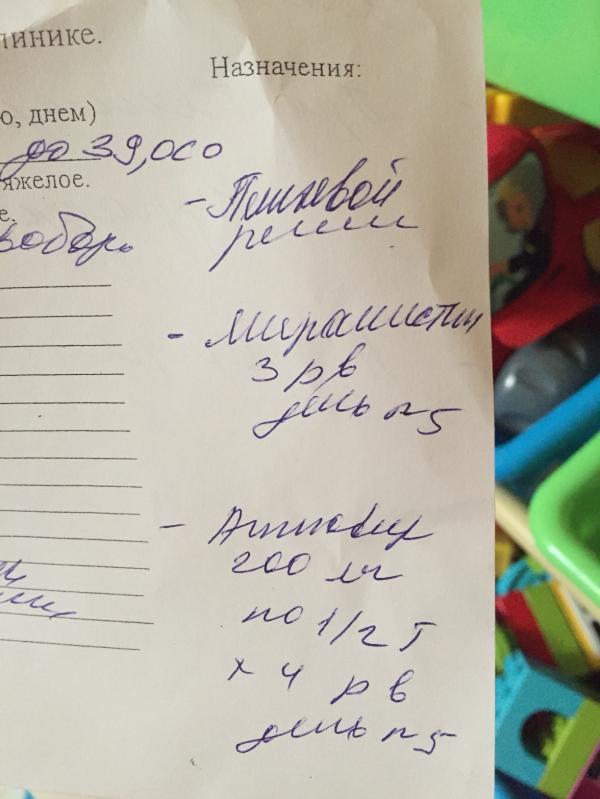 линике.
Назначения:
ю, днем)
до 39,0СО
яжелое.
- Питьевой
режим
е.
- Мирамистин
3 р в
день n 5
-
200 мг
по 1/2 т
x 4 р в
день n 5